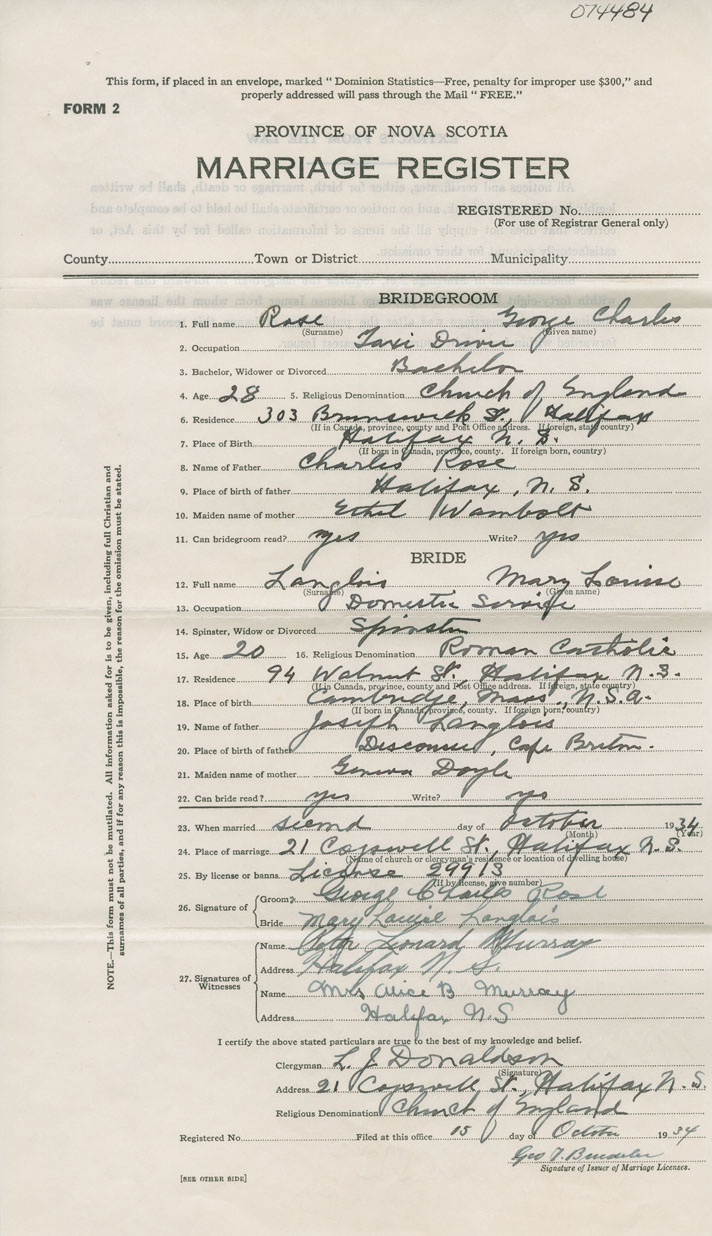 074484
This form, if placed in an envelope, marked " Dominion Statistics—Free, penalty for improper use $300," and
properly addressed will pass through the Mail " FREE."
FORM 2
PROVINCE OF NOVA SCOTIA
MARRIAGE REGISTER
REGISTERED No.
(For use of Registrar General only)
County Town or District Municipality
BRIDEGROOM
1. Full name Rose George Charles
(Surname) (Given name)
2. Occupation Taxi Driver
3. Bachelor, Widower or Divorced Bachelor
4. Age 28 5. Religious Denomination Church of England
6. Residence 303 Brunswick St., Halifax
(If in Canada, province, county and Post Office address. If foreign, state country)
7. Place of Birth Halifax N. S.
(If born in Canada, province, county. If foreign born, country)
8. Name of Father Charles Rose
9. Place of birth of father Halifax, N. S.
10. Maiden name of mother Ethel Wambolt
11. Can bridegroom read? yes Write? yes
BRIDE
12. Full name Langlois Mary Louise
(Surname) (Given name)
13. Occupation Domestic Service
14. Spinster, Widow or Divorced Spinster
15. Age 20 16. Religious Denomination Roman Catholic
17. Residence 94 Walnut St., Halifax N. S.
(If in Canada, province, county and Post Office address. If foreign, state country)
18. Place of birth Cambridge, Mass., U. S. A.
(If born in Canada, province, county. If foreign born, country)
19. Name of father Joseph Langlois
20. Place of birth of father Cape Breton.
21. Maiden name of mother Doyle
22. Can bride read? yes Write? yes
23. When married second day of October 1934
(Month) (Year)
24. Place of marriage 21 Cogswell St., Halifax N. S.
(Name of church or clergyman's residence or location of dwelling house)
25. By license or banns License 29913
(If by license, give number)
26. Signature of Groom George Charles Rose
Bride Mary Louise Langlois
27. Signatures of Witnesses
Name Leonard Murray
Address Halifax N. S.
Name Mrs Alice B Murray
Address Halifax N. S
I certify the above stated particulars are true to the best of my knowledge and belief.
Clergyman L. J. Donaldson
(Signature)
Address 21 Cogswell St., Halifax N. S.
Religious Denomination Church of England
Registered No. Filed at this office 15 day of October 1934
Geo T.
Signature of Issuer of Marriage Licenses.
[SEE OTHER SIDE]
NOTE.—This form must not be mutilated. All information asked for is to be given, including full Christian and
surnames of all parties, and if for any reason this is impossible, the reason for the omission must be stated.